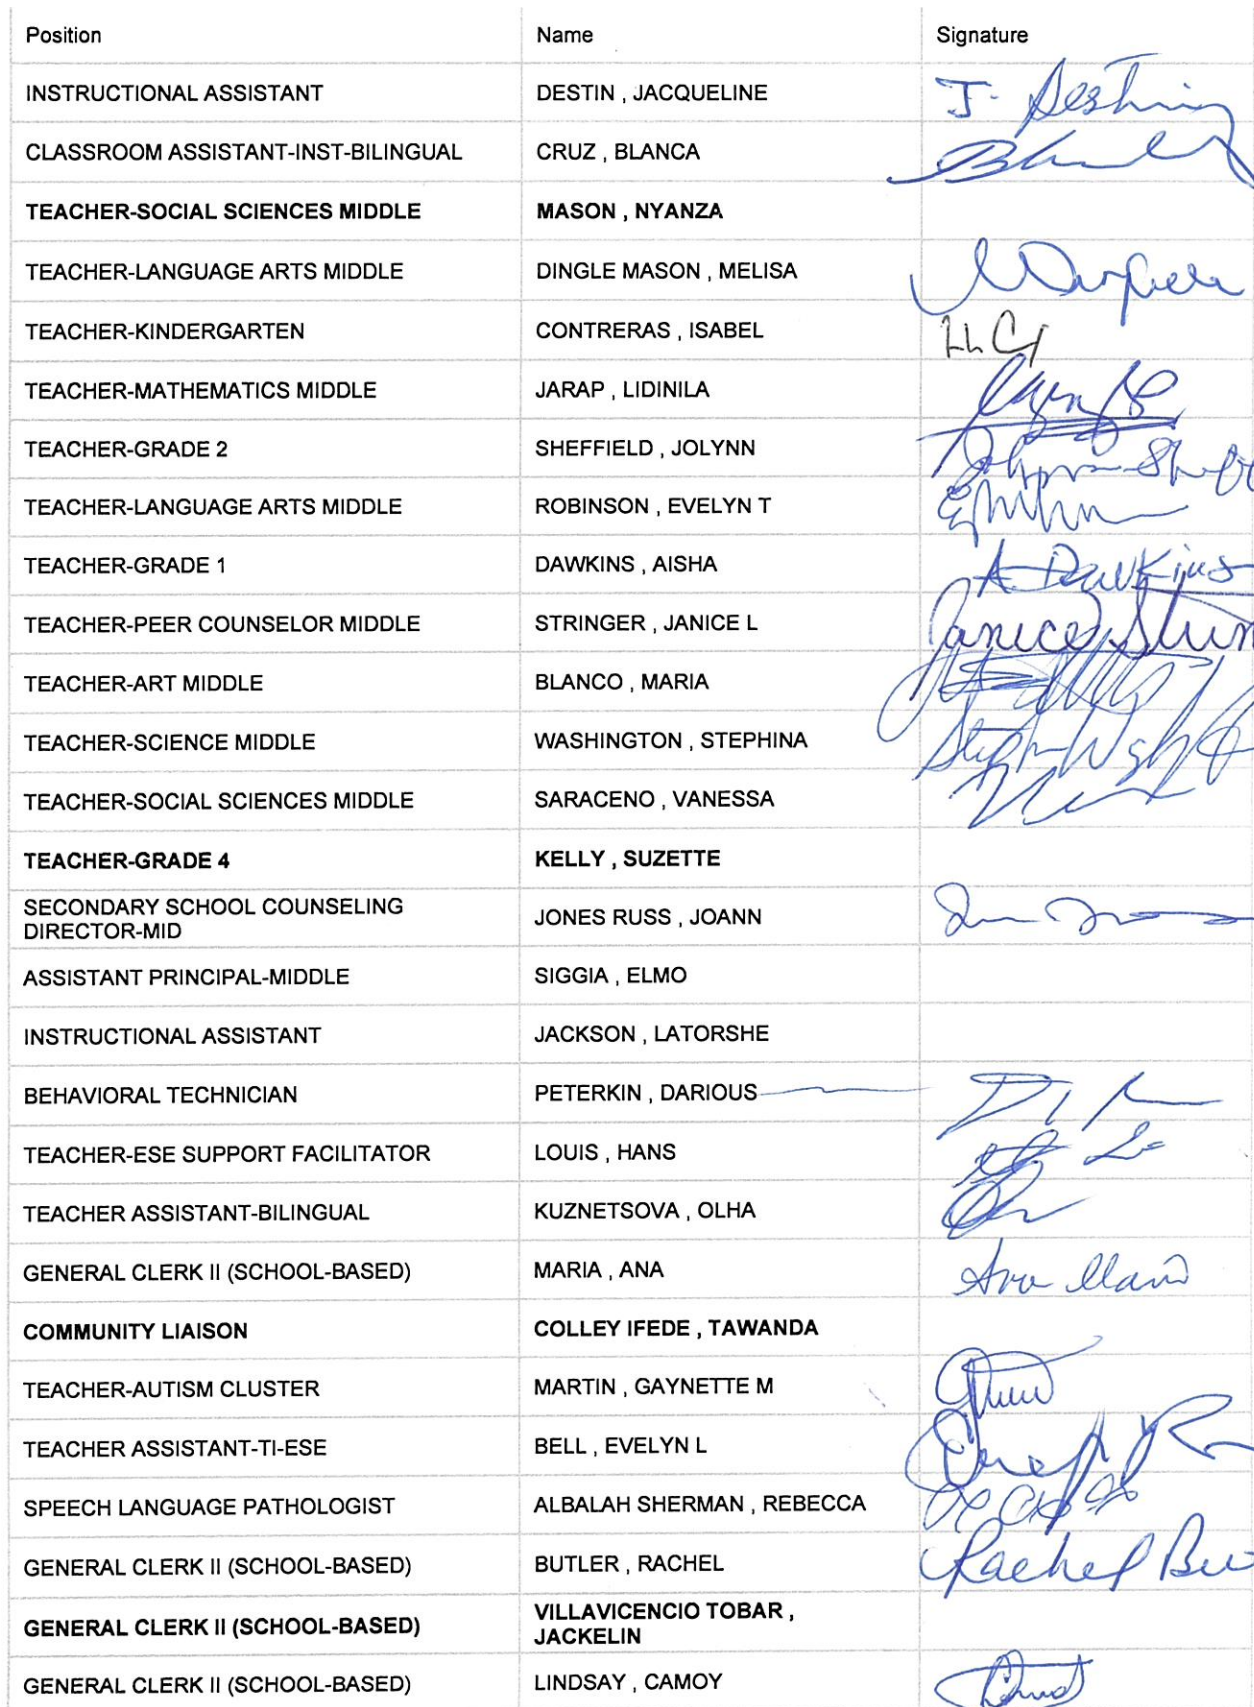 Position Name Signature
INSTRUCTIONAL ASSISTANT DESTIN , JACQUELINE J. Destin
CLASSROOM ASSISTANT-INST-BILINGUAL CRUZ , BLANCA
TEACHER-SOCIAL SCIENCES MIDDLE MASON , NYANZA
TEACHER-LANGUAGE ARTS MIDDLE DINGLE MASON , MELISA
TEACHER-KINDERGARTEN CONTRERAS , ISABEL
TEACHER-MATHEMATICS MIDDLE JARAP , LIDINILA
TEACHER-GRADE 2 SHEFFIELD , JOLYNN
TEACHER-LANGUAGE ARTS MIDDLE ROBINSON , EVELYN T
TEACHER-GRADE 1 DAWKINS , AISHA A. Dawkins
TEACHER-PEER COUNSELOR MIDDLE STRINGER , JANICE L Janice
TEACHER-ART MIDDLE BLANCO , MARIA
TEACHER-SCIENCE MIDDLE WASHINGTON , STEPHINA
TEACHER-SOCIAL SCIENCES MIDDLE SARACENO , VANESSA
TEACHER-GRADE 4 KELLY , SUZETTE
SECONDARY SCHOOL COUNSELING
DIRECTOR-MID JONES RUSS , JOANN
ASSISTANT PRINCIPAL-MIDDLE SIGGIA , ELMO
INSTRUCTIONAL ASSISTANT JACKSON , LATORSHE
BEHAVIORAL TECHNICIAN PETERKIN , DARIOUS
TEACHER-ESE SUPPORT FACILITATOR LOUIS , HANS
TEACHER ASSISTANT-BILINGUAL KUZNETSOVA , OLHA
GENERAL CLERK II (SCHOOL-BASED) MARIA , ANA Ana Maria
COMMUNITY LIAISON COLLEY IFEDE , TAWANDA
TEACHER-AUTISM CLUSTER MARTIN , GAYNETTE M
TEACHER ASSISTANT-TI-ESE BELL , EVELYN L
SPEECH LANGUAGE PATHOLOGIST ALBALAH SHERMAN , REBECCA
GENERAL CLERK II (SCHOOL-BASED) BUTLER , RACHEL Rachel
GENERAL CLERK II (SCHOOL-BASED) VILLAVICENCIO TOBAR ,
JACKELIN
GENERAL CLERK II (SCHOOL-BASED) LINDSAY , CAMOY